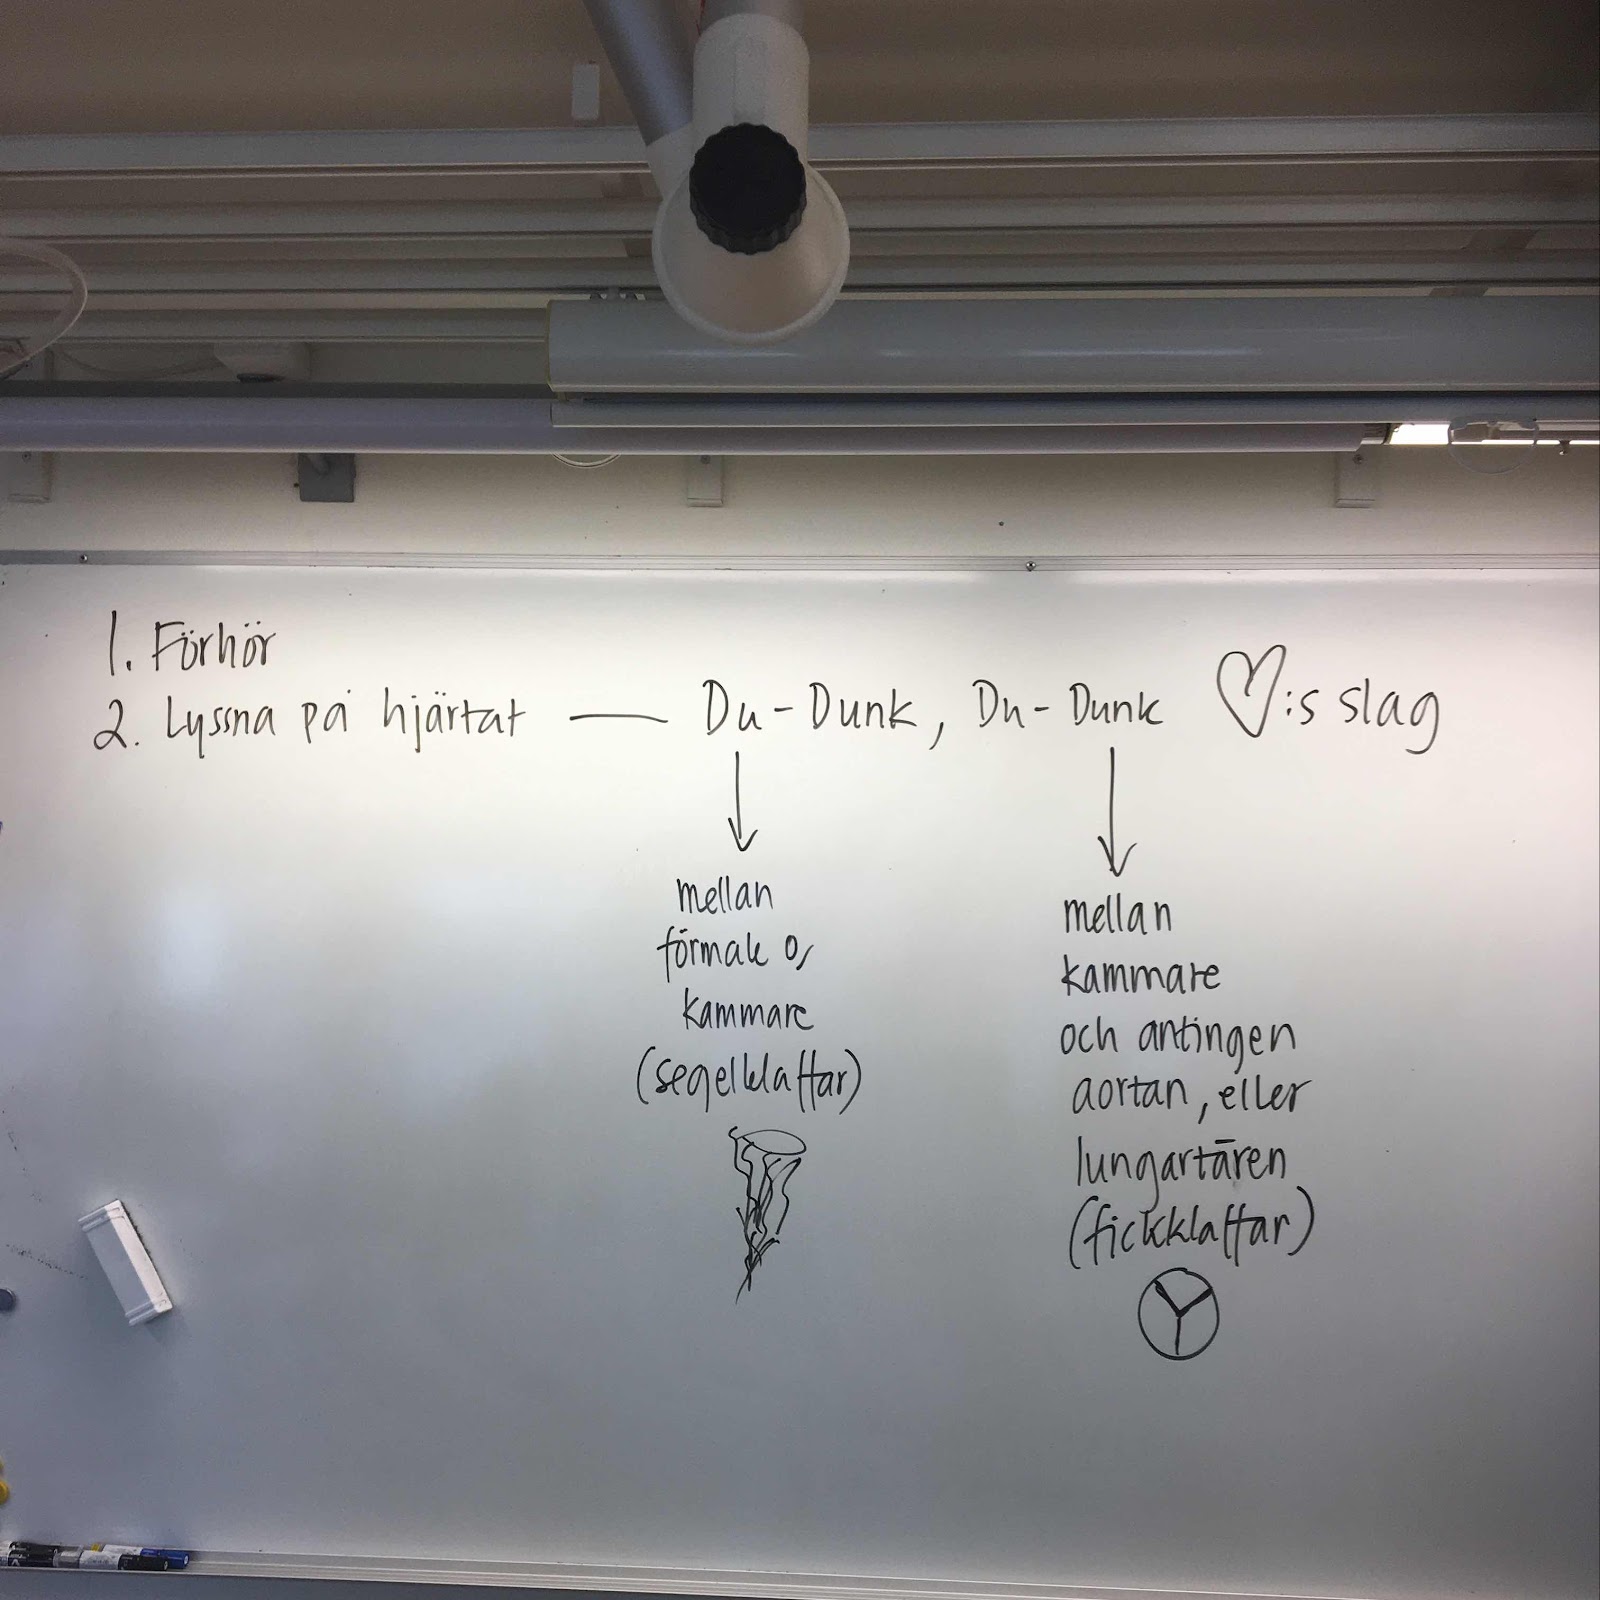 1. Förhör
2. Lyssna på hjärtat — Du-Dunk, Du-Dunk ♡:s slag
mellan
förmak o,
kammare
(segelklaffar)
mellan
kammare
och antingen
aortan, eller
lungartären
(fickklaffar)